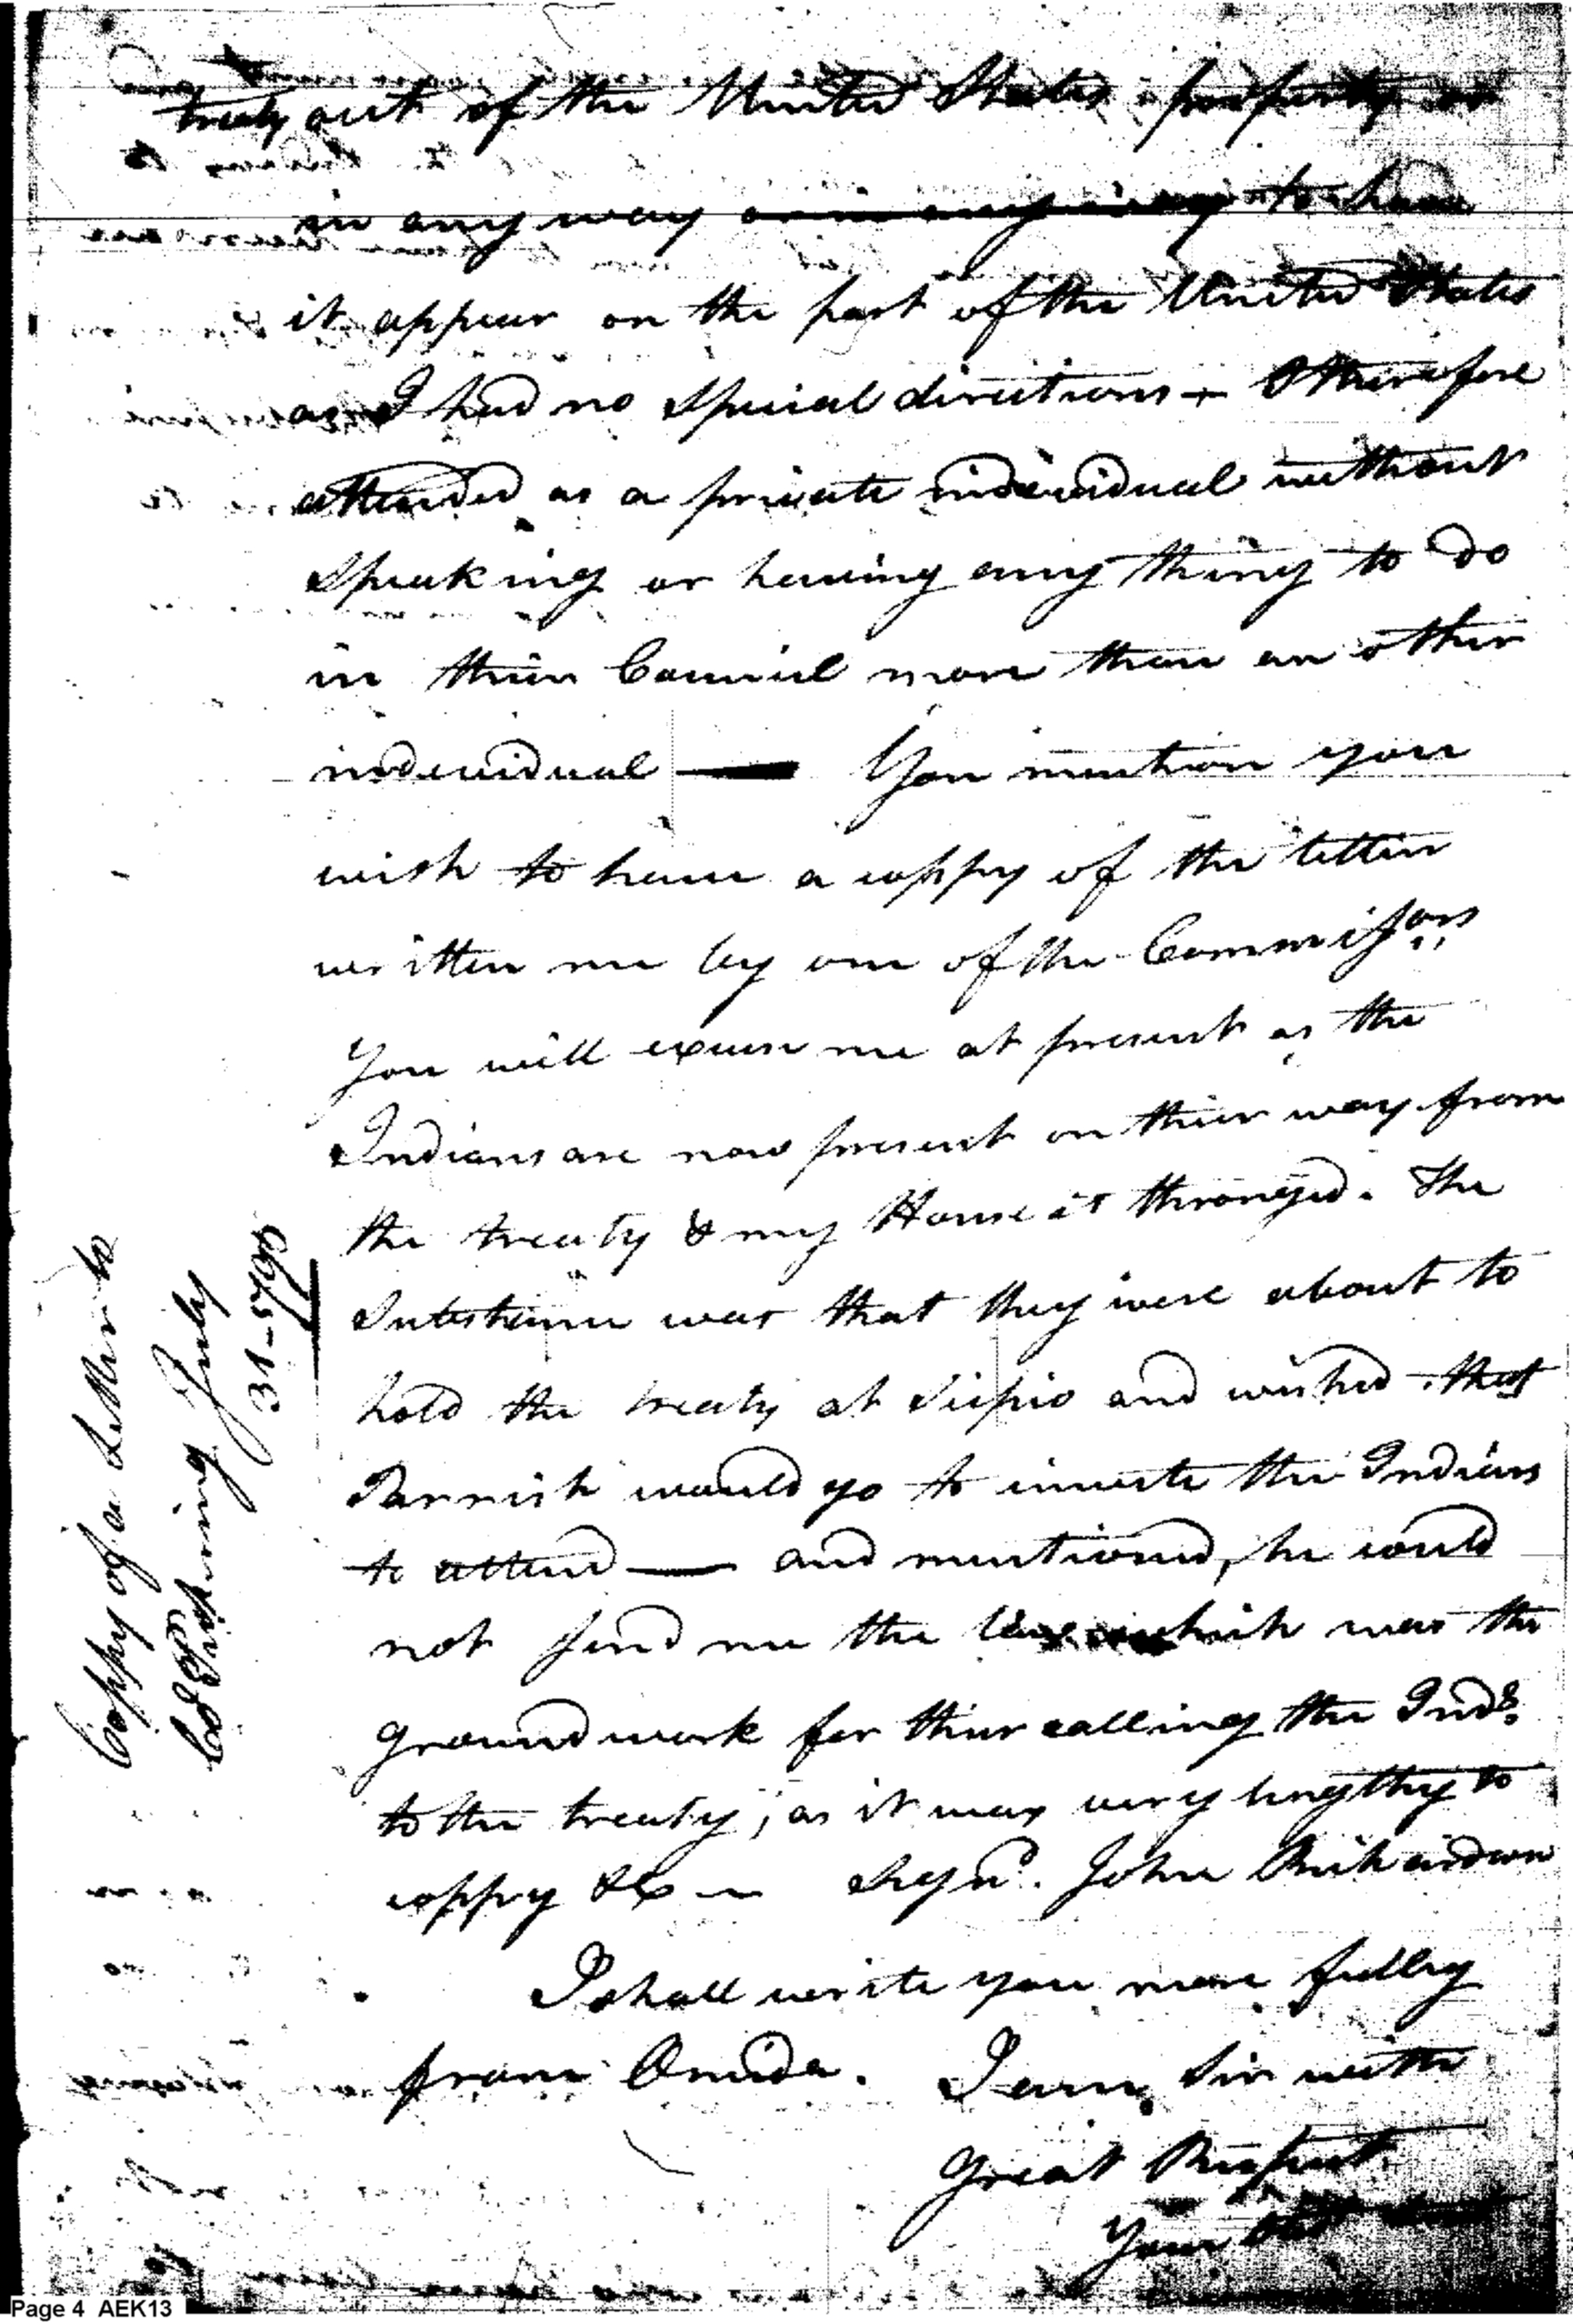 treaty out of the United States property or
in any way or in any way to have
it appear on the part of the United States
as I had no special directions - I therefore
attended as a private individual without
speaking or having any thing to do
in thier Council more than an other
individual — You mention you
wish to have a coppy of the letter
written me by one of the Commissors
You will excuse me at present as the
Indians are now present on thier way from
the treaty & my House is thronged. The
Substance was that they were about to
hold the treaty at Scipio and wished that
Parrish would go to invite the Indians
to attend — and mentioned, he could
not send me the law which was the
ground work for thier calling the Inds.
to the treaty, as it was very lengthy to
coppy &c — Signd. John Richardson
I shall write you more fully
from Onida. I am, Sir with
Great Respect
Your Obt
Coppy of a Letter to
Col Pickering July
31 - 1795
Page 4 AEK13